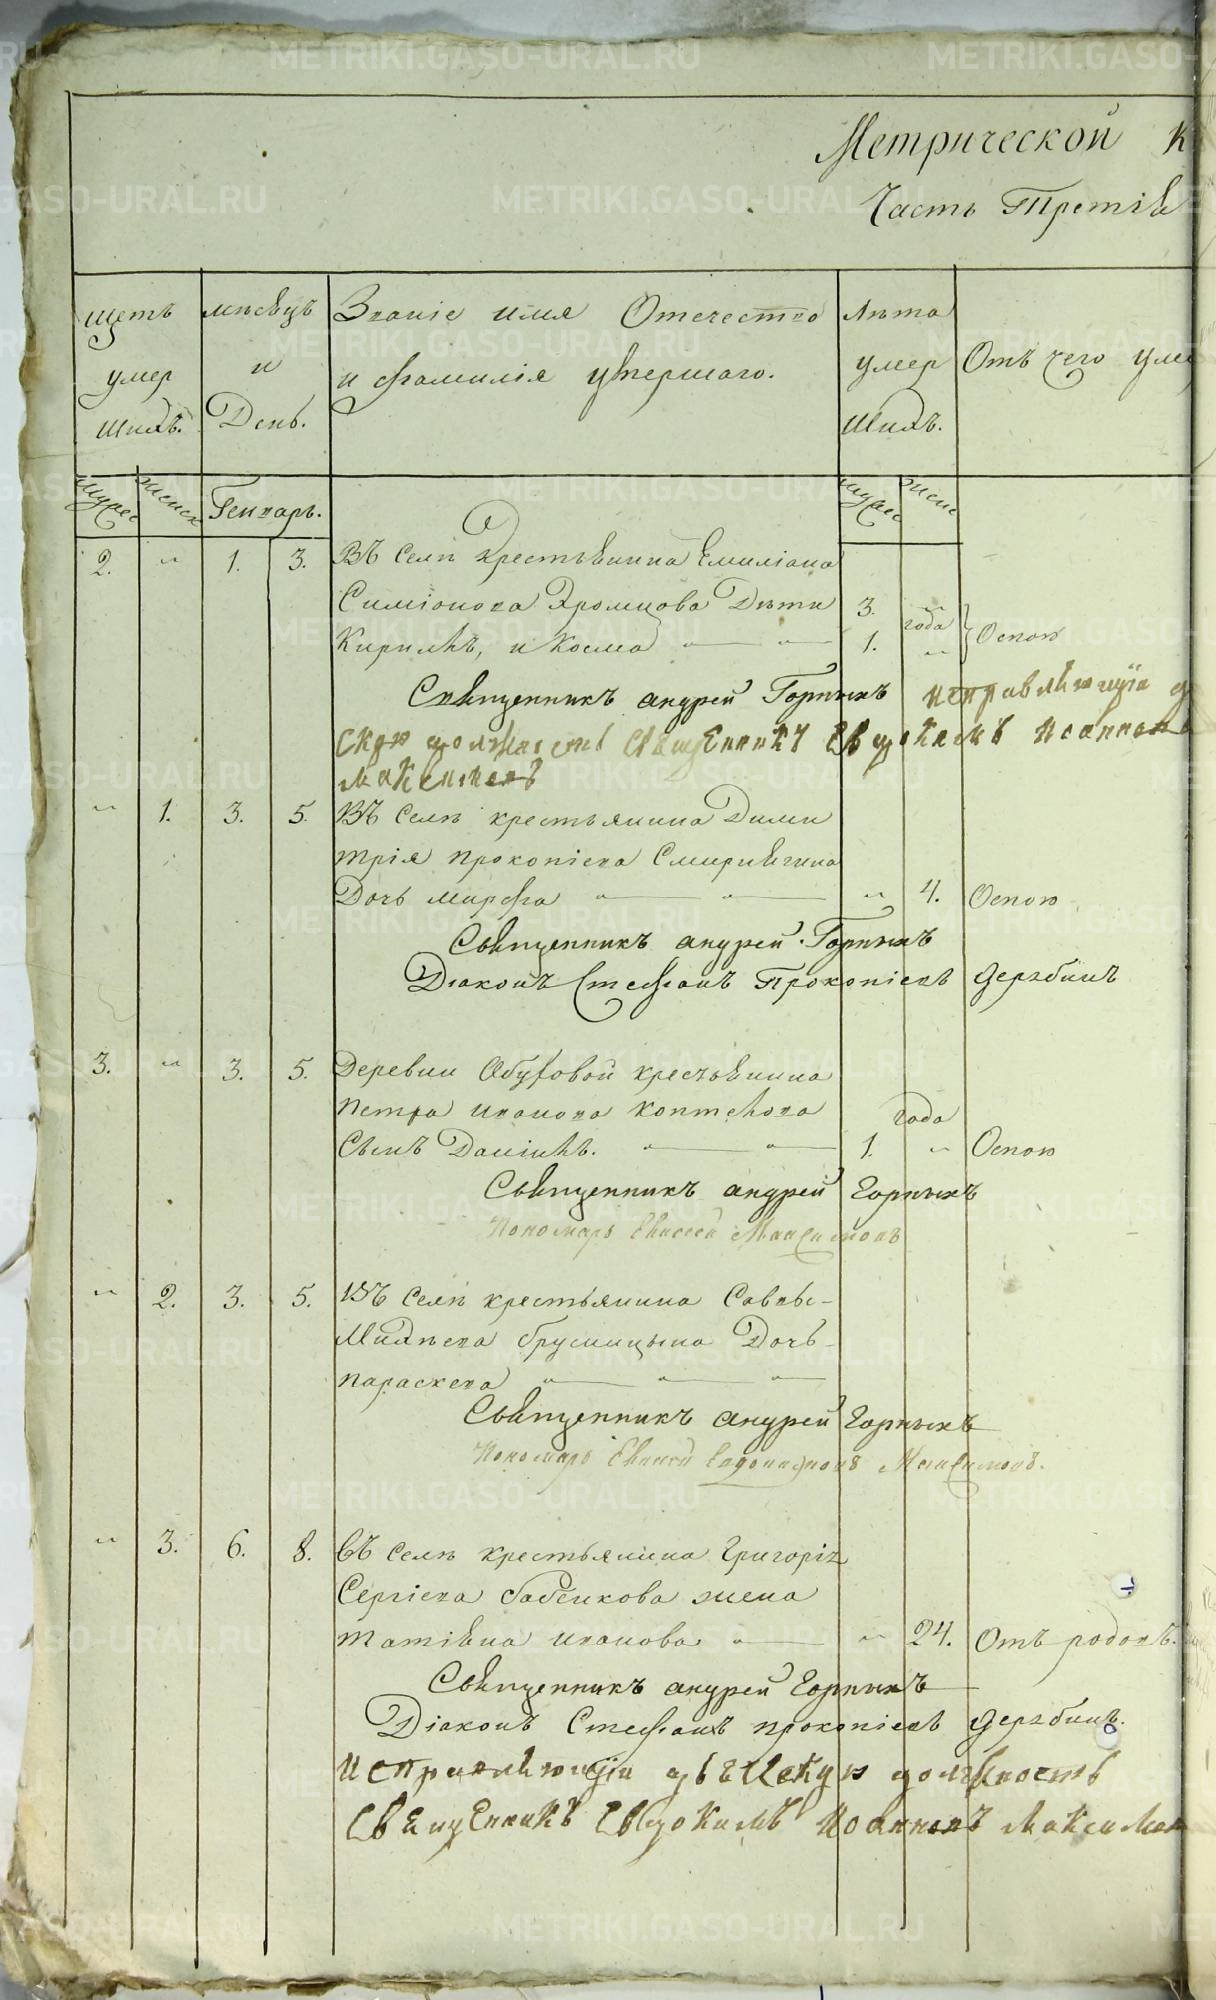 Метрической к
Часть Третія
Щетъ умер шихъ.
мѣсяцъ и День.
Званіе имя Отечество
и фамилія умершаго.
Лѣта умер шихъ.
Отъ чего уме
мужес
женск
Генварь.
мужес
женс
2. " 1. 3. Въ Селѣ крестьянина Емиліана
Симіонова Хромцова Дѣти 3. "
Кирилъ, и Косма " " 1. года " Оспою
Священникъ андрей Горныхъ исправляющіи д
скую должность Священникъ Евдокимъ Иоанновъ
Максимовъ
" 1. 3. 5. Въ Селѣ крестьянина Дими
трія прокопіева Смирнягина
Дочь марфа " " " 4. Оспою
Священникъ андрей Горныхъ
Діаконъ Стефанъ Прокопіевъ Дерябинъ
3. " 3. 5. Деревни Обуховой крестьянина
Петра иванова коптелова года
Сынъ Даніилъ. " " 1. " Оспою
Священникъ андрей Горныхъ
Пономарь Елисей Максимовъ
" 2. 3. 5. Въ Селѣ крестьянина Саввы
Михѣева брусницына Дочь
параскева " " "
Священникъ андрей Горныхъ
Пономарь Елисей Максимовъ.
" 3. 6. 8. Въ Селѣ крестьянина Григорія
Сергіева бабенкова жена
татіяна иванова " " 24. Отъ родовъ.
Священникъ андрей Горныхъ
Діаконъ Стефанъ прокопіевъ Дерябинъ.
Исправляющіи дьяческую должность
Священникъ Евдокимъ Иоанновъ Максимов
METRIKI.GASO-URAL.RU